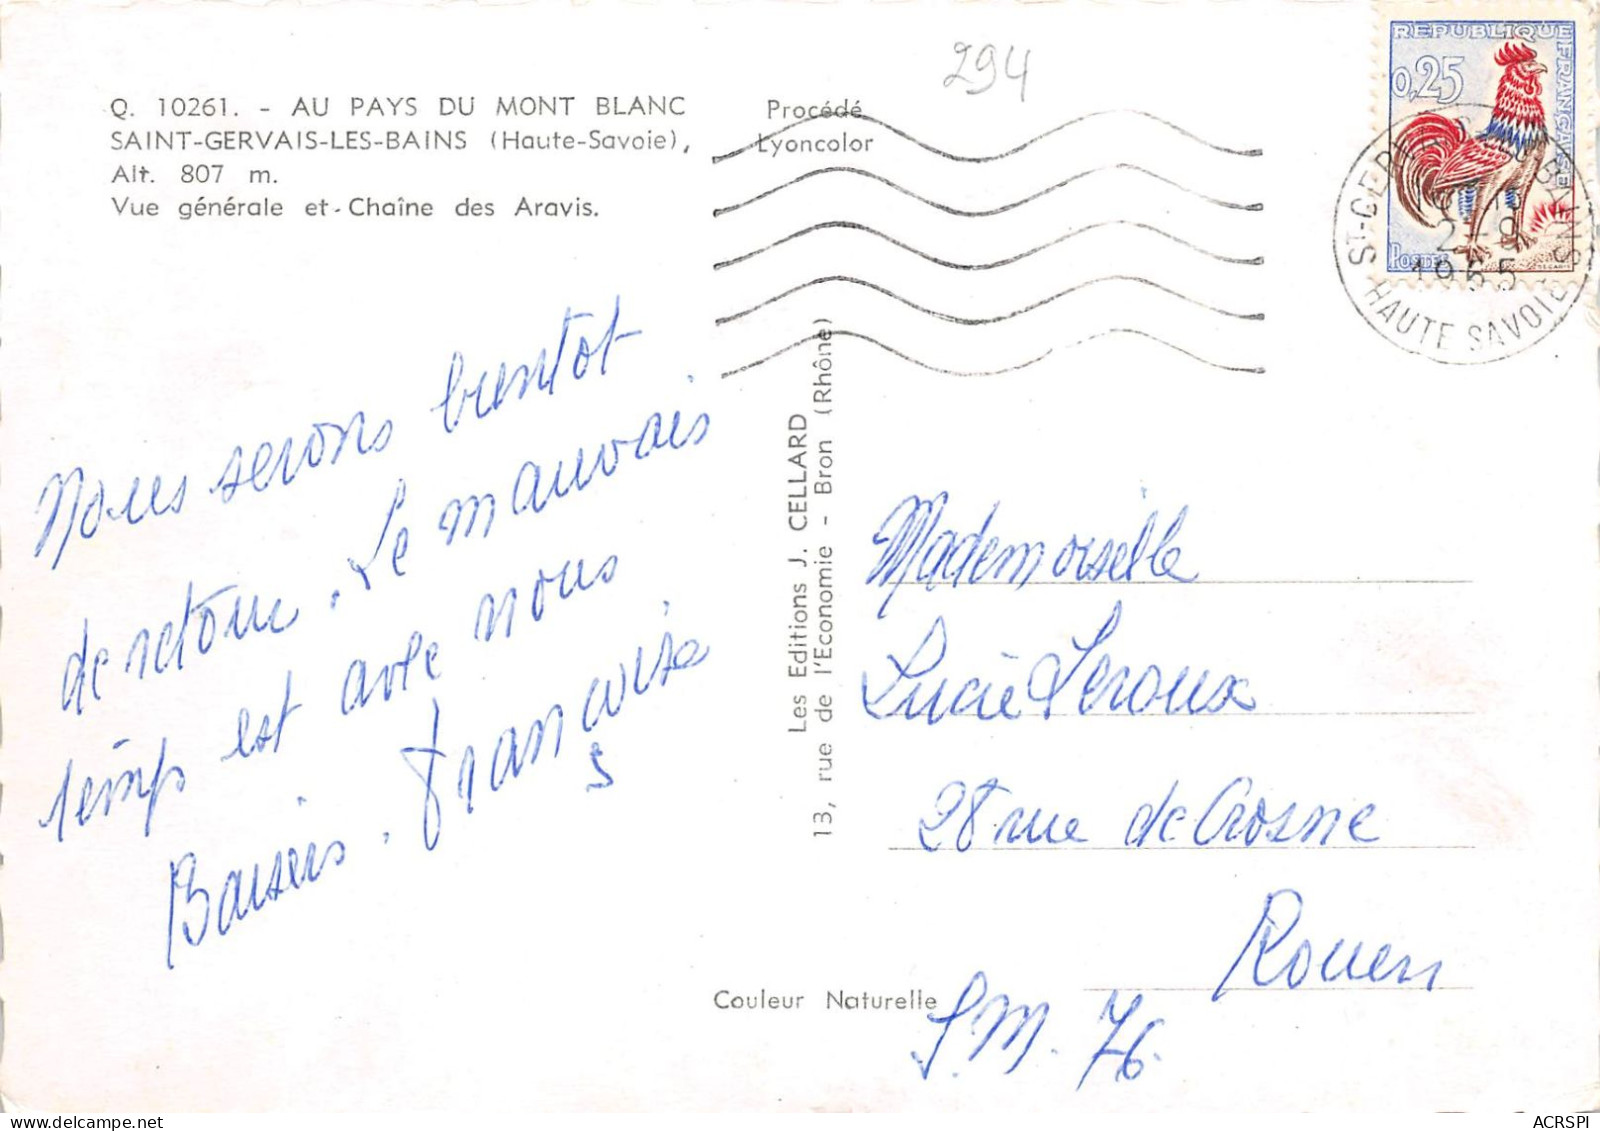 294
Q. 10261. - AU PAYS DU MONT BLANC
SAINT-GERVAIS-LES-BAINS (Haute-Savoie),
Alt. 807 m.
Vue générale et Chaîne des Aravis.
Procédé
Lyoncolor
REPUBLIQUE
FRANÇAISE
0,25
POSTES
ST-GERVAIS LES BAINS
2-9
1965
HAUTE SAVOIE
Nous serons bientot
de retour. Le mauvais
temps est avec nous
Baisers. Françoise
Les Editions J. CELLARD
13, rue de l'Economie - Bron (Rhône)
Mademoiselle
Lucie Leroux
28 rue de Crosne
Rouen
S.M. 76.
Couleur Naturelle
ACRSPI